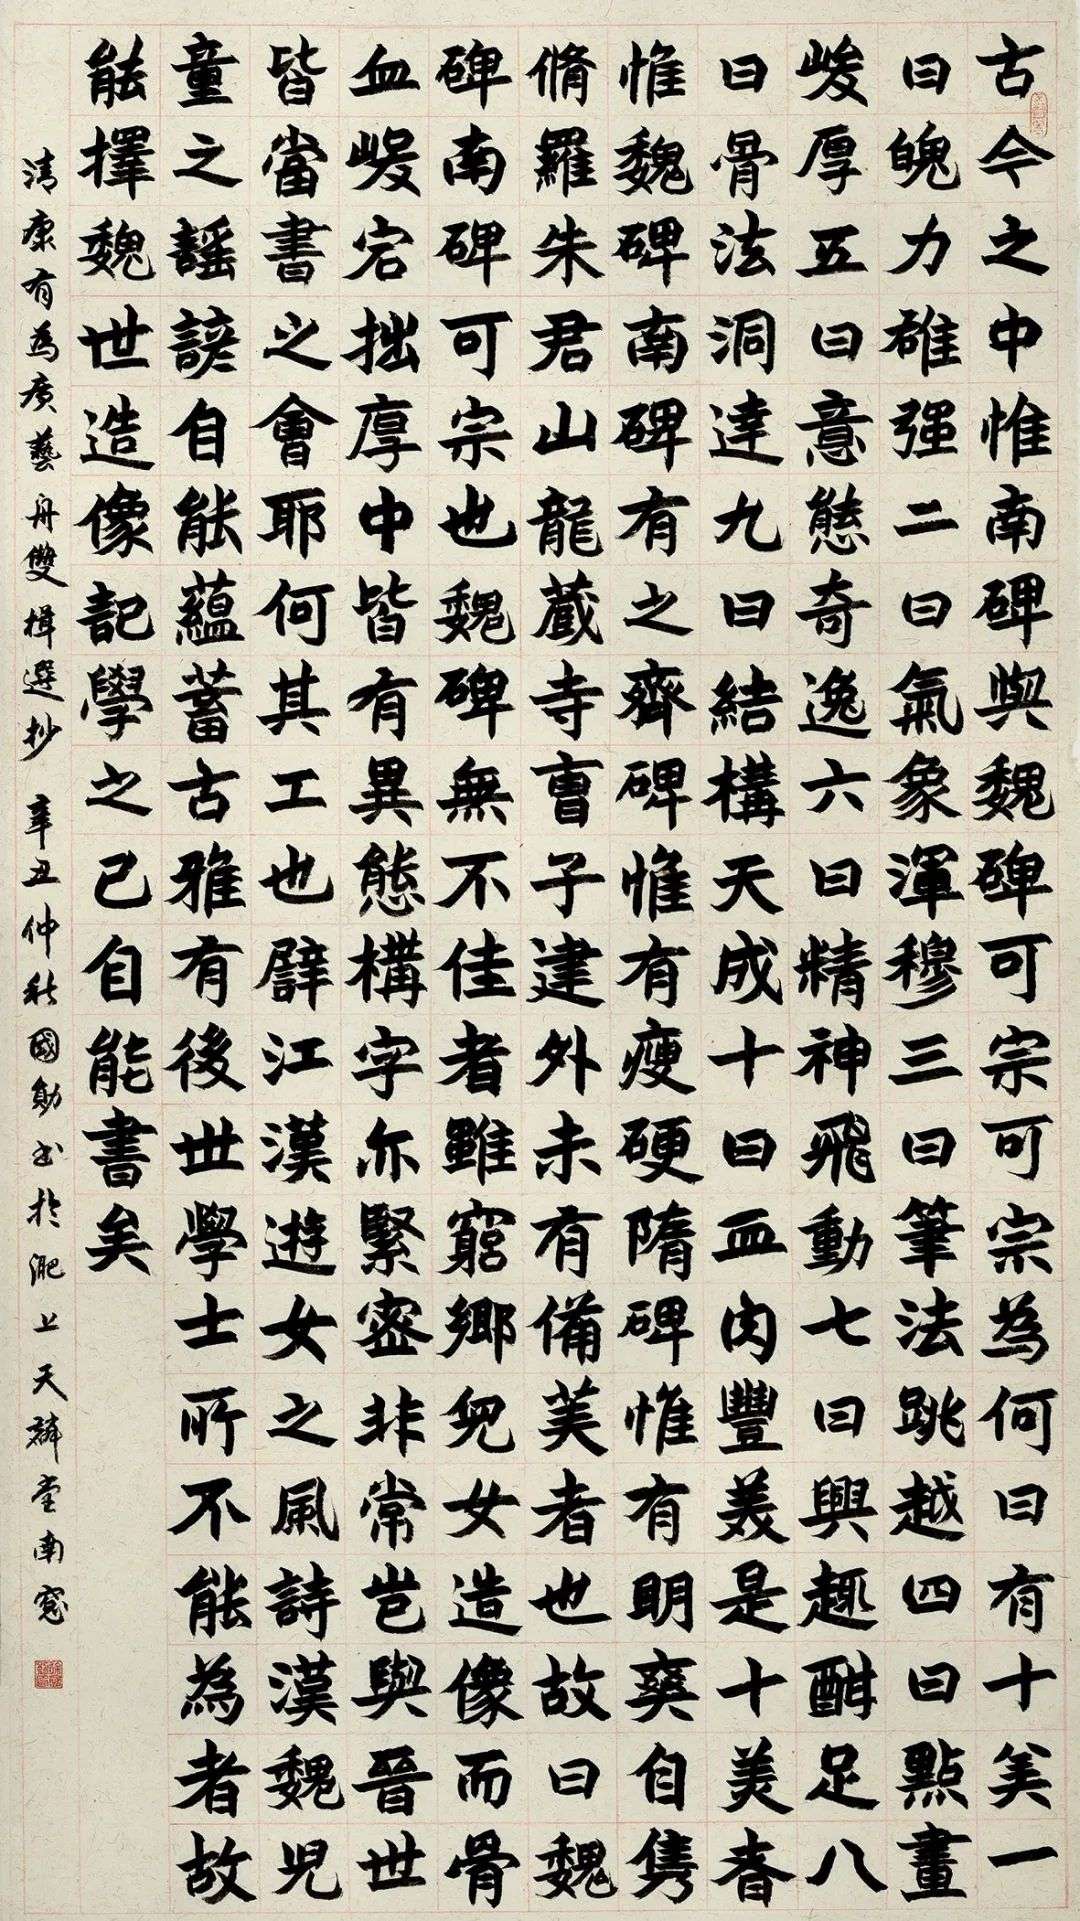 古今之中惟南碑與魏碑可宗可宗為何曰有十美一
曰魄力雄强二曰氣象渾穆三曰筆法跳越四曰點畫
峻厚五曰意態奇逸六曰精神飛動七曰興趣酣足八
曰骨法洞達九曰結構天成十曰血肉豐美是十美者
惟魏碑南碑有之齊碑惟有瘦硬隋碑惟有明爽自雋
脩羅朱君山龍藏寺曹子建外未有備美者也故曰魏
碑南碑可宗也魏碑無不佳者雖窮鄉兒女造像而骨
血峻宕拙厚中皆有異態構字亦緊密非常豈與晉世
皆當書之會耶何其工也譬江漢遊女之風詩漢魏兒
童之謠諺自能蘊蓄古雅有後世學士所不能為者故
能擇魏世造像記學之已自能書矣
清康有為廣藝舟雙楫選抄 辛丑仲秋國勛書於淝上天麟堂南窗